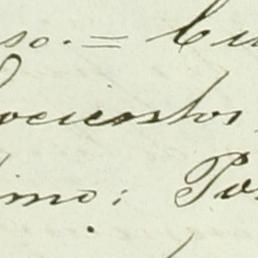 so. = Cu
ocientos
imo: Po